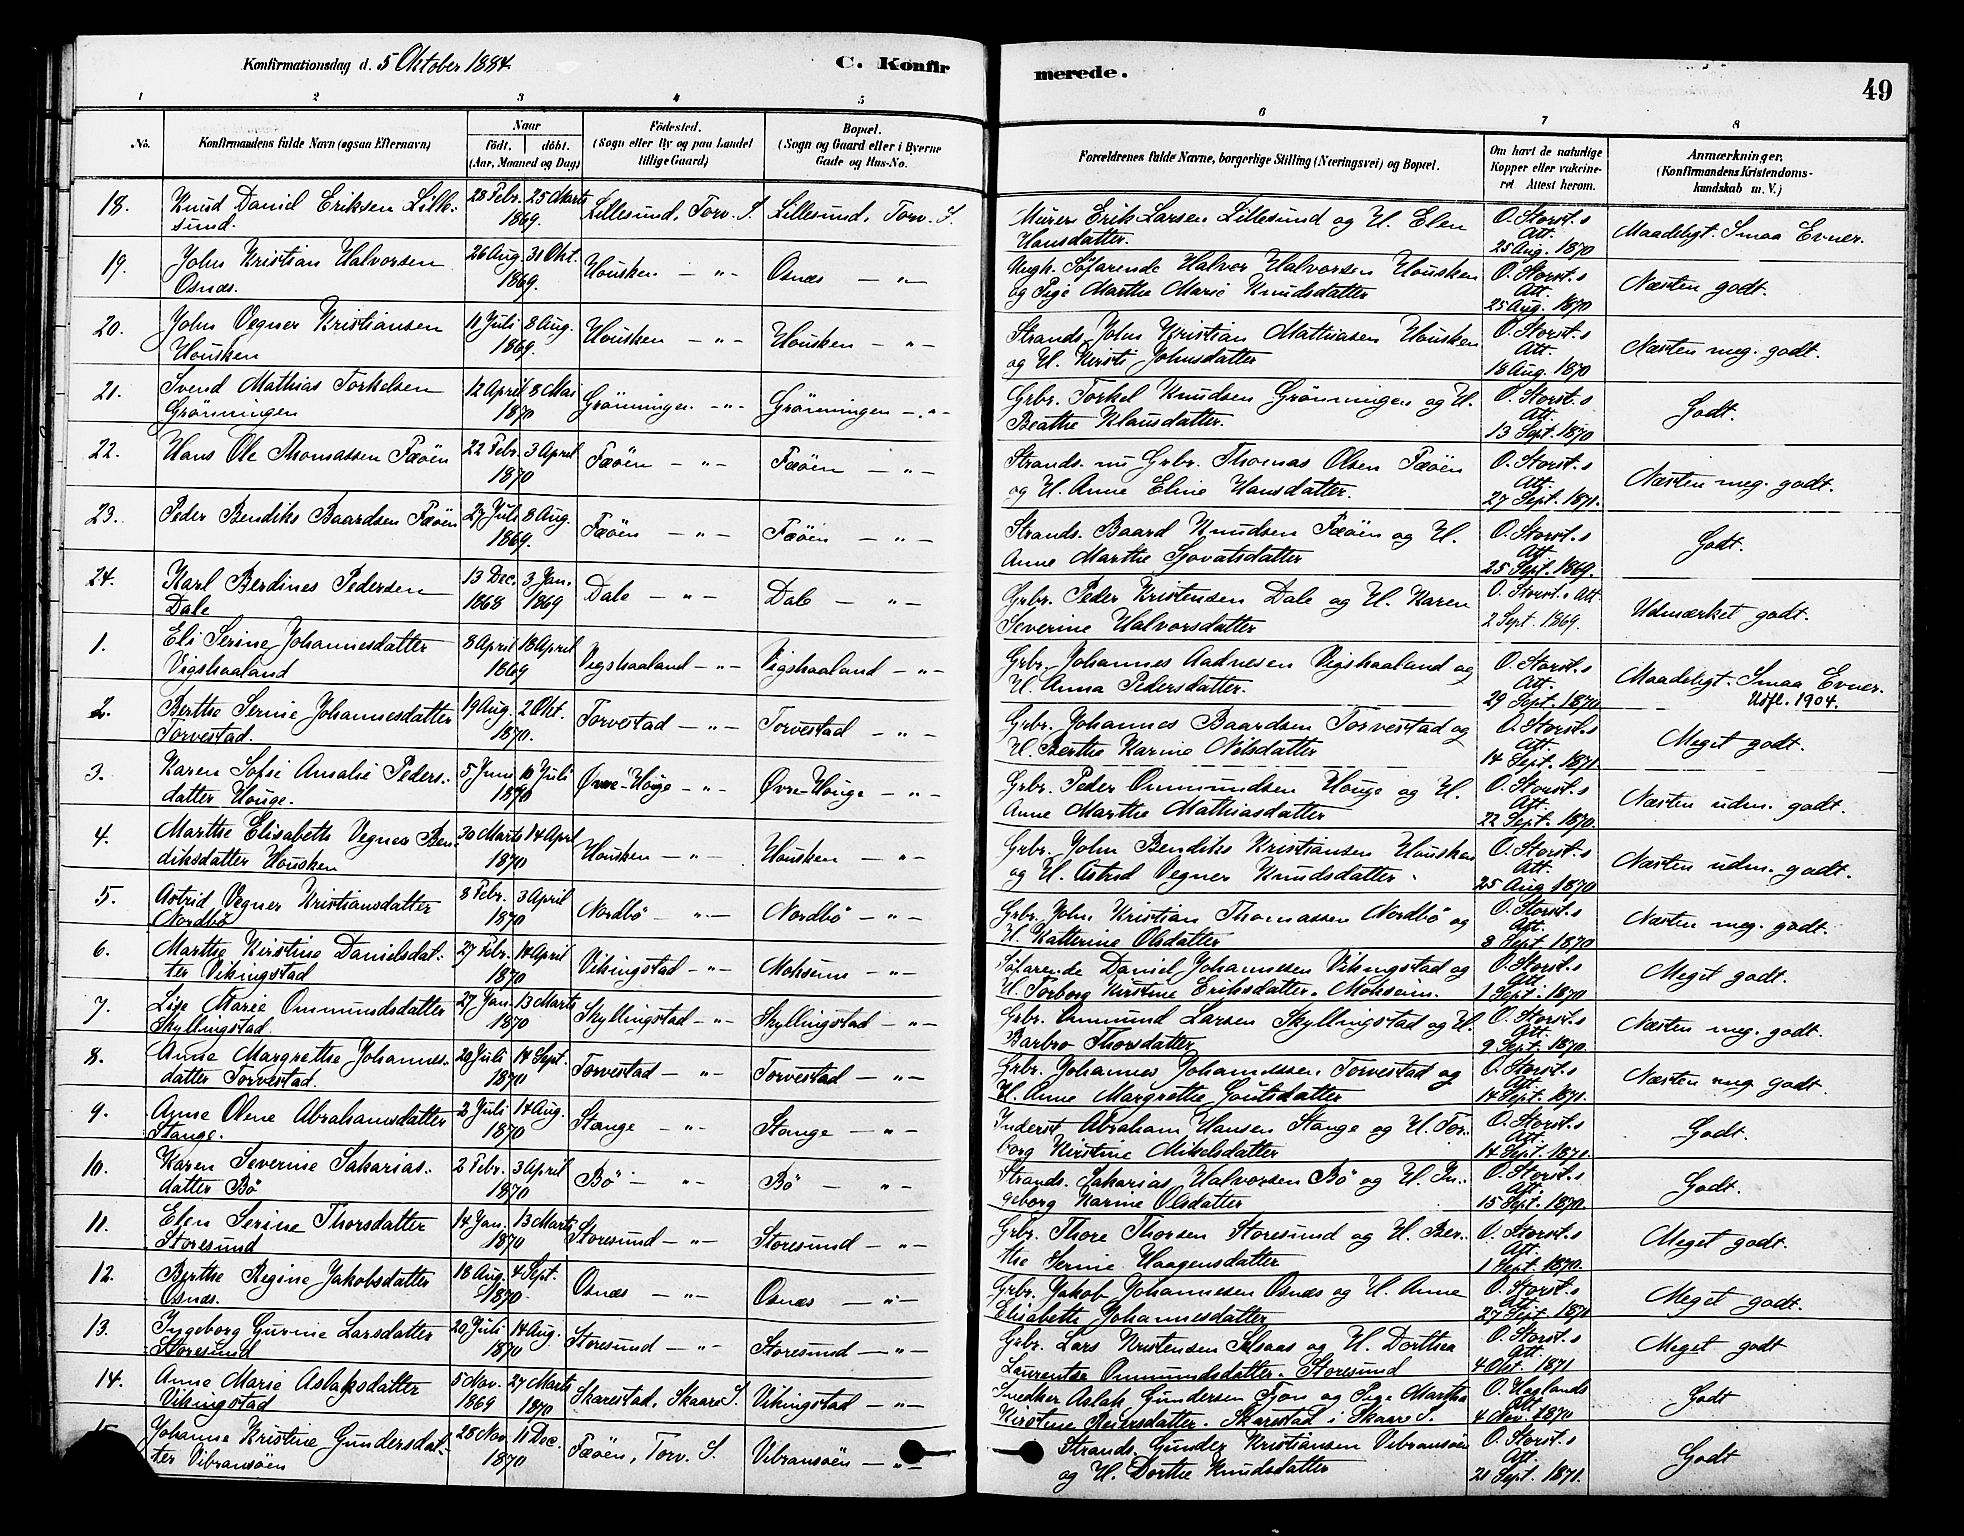 Konfirmationsdag d. 5 Oktober 1884. C. Konfirmerede. 49
1 2 3 4 5 6 7 8
No. Konfirmandens fulde Navn (ogsaa Efternavn) Naar født. døbt. (Aar, Maaned og Dag) Fødested. (Sogn eller By og paa Landet tillige Gaard) Bopæl. (Sogn og Gaard eller i Byerne Gade og Hus-No. Forældrenes fulde Navne, borgerlige Stilling (Næringsvei) og Bopæl. Om havt de naturlige Kopper eller vakcineret Attest herom. Anmærkninger. (Konfirmandens Kristendomskundskab m. V.)
18. Knud Daniel Eriksen Lille- 28 Febr. 25 Marts Lillesund, Torv. S. Lillesund, Torv. S. Murer Erik Larsen Lillesund og H. Elen O. Storst.s Maadeligt. Smaa Evner.
sund. 1869. Hansdatter. Att. 25 Aug. 1870
19. John Kristian Halvorsen 26 Aug. 31 Okt. Housken — " — Osnæs — " — Ungk. Søfarende Halvor Halvorsen Housken O. Storst.s Næsten godt.
Osnæs. 1869. og Pige Marthe Marie Knudsdatter Att. 25 Aug. 1870
20. John Vegner Kristiansen 11 Juli 8 Aug. Housken — " — Housken — " — Strands. John Kristian Mathiasen Housken O. Storst.s Næsten meg. godt.
Housken 1869. og H. Kirsti Johnsdatter Att. 18 Aug. 1870
21. Svend Mathias Torkelsen 12 April 8 Mai Grönningen — " — Grönningen — " — Grbr. Torkel Knudsen Grönningen og H. O. Storst.s Godt.
Grönningen 1870 Beathe Klausdatter. Att. 13 Sept. 1870
22. Hans Ole Thomassen Fæöen 22 Febr. 3 April Fæöen — " — Fæöen — " — Strands. nu Grbr. Thomas Olsen Fæöen O. Storst.s Næsten meg. godt.
1870 og H. Anne Eline Hansdatter. Att. 27 Sept. 1871.
23. Peder Bendiks Baardsen Fæöen 27 Juli 8 Aug. Fæöen — " — Fæöen — " — Strands. Baard Knudsen Fæöen og H. O. Storst.s Godt.
1869. Anne Marthe Sjovatsdatter Att. 25 Sept. 1869.
24. Karl Berdines Pedersen 13 Dec. 3 Jan. Dale — " — Dale — " — Grbr. Peder Kristensen Dale og H. Karen O. Storst.s Att. Udmærket godt.
Dale 1868 1869 Severine Halvorsdatter 2 Sept. 1869.
1. Eli Serine Johannesdatter 8 April 18 April Vigshaaland — " — Vigshaaland — " — Grbr. Johannes Aadnesen Vigshaaland og O. Storst.s Maadeligt. Smaa Evner.
Vigshaaland 1869 H. Anna Pedersdatter. Att. 29 Sept. 1870 Udfl. 1904.
2. Berthe Serine Johannesdatter 19 Aug. 2 Okt. Torvestad — " — Torvestad — " — Grbr. Johannes Baardsen Torvestad og O. Storst.s Meget godt.
Torvestad. 1870. H. Berthe Karine Nilsdatter Att. 14 Sept. 1871.
3. Karen Sofie Amalie Peders- 5 Juni 10 Juli Øvre-Houge — " — Øvre-Houge — " — Grbr. Peder Ommundsen Houge og H. O. Storst.s Næsten udm. godt.
datter Houge. 1870 Anne Marthe Mathiasdatter Att. 22 Sept. 1870.
4. Marthe Elisabeth Vegner Ben- 30 Marts 14 April Housken — " — Housken — " — Grbr. John Bendiks Kristiansen Housken O. Storst.s Næsten udm. godt.
diksdatter Housken 1870 og H. Astrid Vegner Knudsdatter Att. 25 Aug 1870
5. Astrid Vegner Kristiansdatter 8 Febr. 3 April Nordbö — " — Nordbö — " — Grbr. John Kristian Thomassen Nordbö og O. Storst.s Næsten meg. godt.
Nordbö 1870 H. Katterine Olsdatter Att. 3 Sept. 1870
6. Marthe Kirstine Danielsdat- 27 Febr. 14 April Vikingstad — " — Mokseim — " — Søfarende Daniel Johannesen Vikingstad og O. Storst.s Meget godt.
ter Vikingstad 1870 H. Torborg Kirstine Eriksdatter. Mokseim. Att. 1 Sept. 1870
7. Lise Marie Ommundsdatter 27 Jan. 13 Marts Skyllingstad — " — Skyllingstad — " — Grbr. Ommund Larsen Skyllingstad og H. O. Storst.s Næsten meg. godt.
Skyllingstad 1870 Barbro Thorsdatter Att. 9 Sept. 1870.
8. Anne Margrethe Johannes- 20 Juli 14 Sept. Torvestad — " — Torvestad — " — Grbr. Johannes Johannessen Torvestad og O. Storst.s Næsten meg. godt.
datter Torvestad. 1870 H. Anne Margrethe Goutsdatter Att. 14 Sept. 1871.
9. Anne Oline Abrahamsdatter 2 Juli 14 Aug. Stange — " — Stange — " — Inderst Abraham Hansen Stange og H. Tor- O. Storst.s Godt.
Stange. 1870 borg Kirstine Mikelsdatter Att. 14 Sept. 1871.
10. Karen Severine Sakarias- 2 Febr. 3 April Bö — " — Bö — " — Strands. Sakarias Halvorsen Bö og H. In- O. Storst.s Godt.
datter Bö 1870 geborg Karine Olsdatter Att. 15 Sept. 1870.
11. Elen Serine Thorsdatter 14 Jan. 13 Marts Storesund — " — Storesund — " — Grbr. Thore Thorsen Storesund og H. Ber- O. Storst.s Meget godt.
Storesund 1870 the Serine Haagensdatter Att. 1 Sept. 1870.
12. Berthe Regine Jakobsdatter 18 Aug. 4 Sept. Osnæs — " — Osnæs — " — Grbr. Jakob Johannesen Osnæs og H. Anne O. Storst.s Meget godt.
Osnæs. 1870 Elisabeth Johannesdatter Att. 27 Sept. 1871
13. Ingeborg Gurine Larsdatter 20 Juli 14 Aug. Storesund — " — Storesund — " — Grbr. Lars Kristensen og H. Dorthea O. Storst.s Meget godt
Storesund 1870 Laurentse Ommundsdatter. Storesund Att. 4 Okt. 1871
14. Anne Marie Aslaksdatter 5 Nov. 27 Marts Skarestad, Skaare S. Vikingstad — " — Snedker Aslak Gundersen og Pige Martha O. Haglands Godt
Vikingstad 1869 1870 Kirstine Reiersdatter. Skarestad i Skaare S. Att. 4 Nov. 1870
15. Johanne Kristine Gundersdat- 28 Nov. 11 Dec. Fæöen, Torv. S. Vibransöen — " — Strands. Gunder Kristiansen Vibransöen O. Storst.s Godt
ter Vibransöen 1870 og H. Dorthe Knudsdatter Att. 21 Sept. 1871.